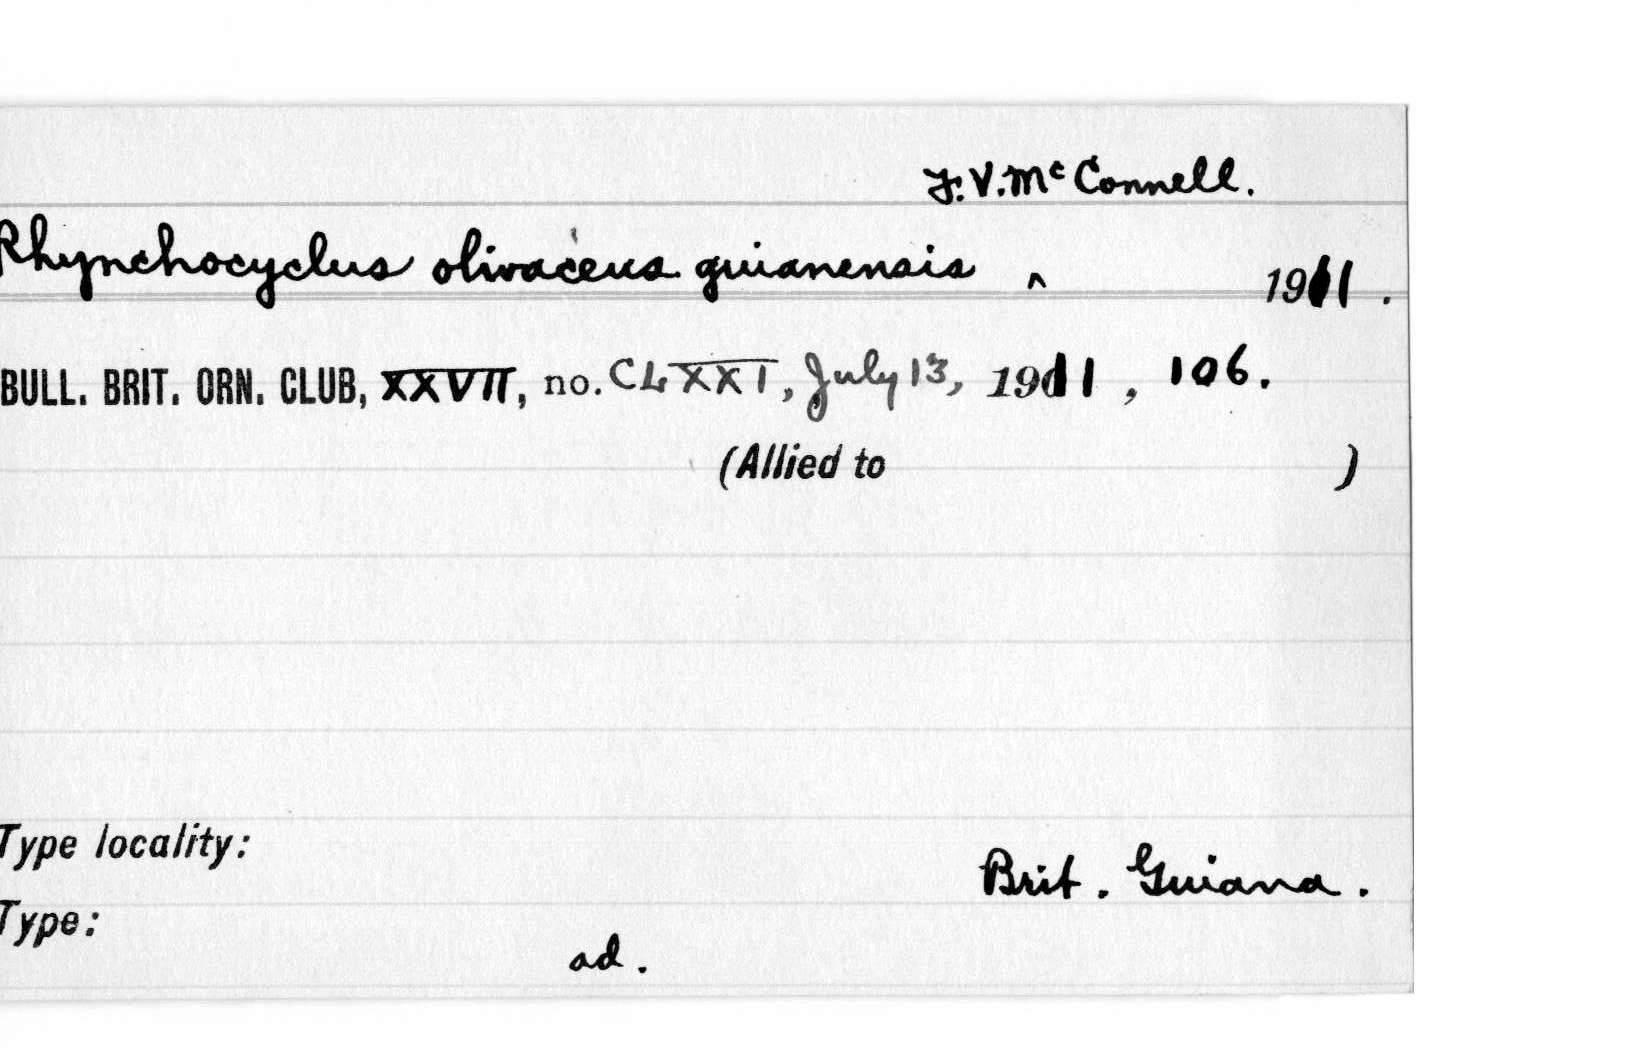 F. V. McConnell.
Rhynchocyclus olivaceus guianensis ^ 1911.
BULL. BRIT. ORN. CLUB, XXVII, no. CLXXI, July 13, 1911, 106.
(Allied to )
Type locality:
Brit. Guiana.
Type:
ad.